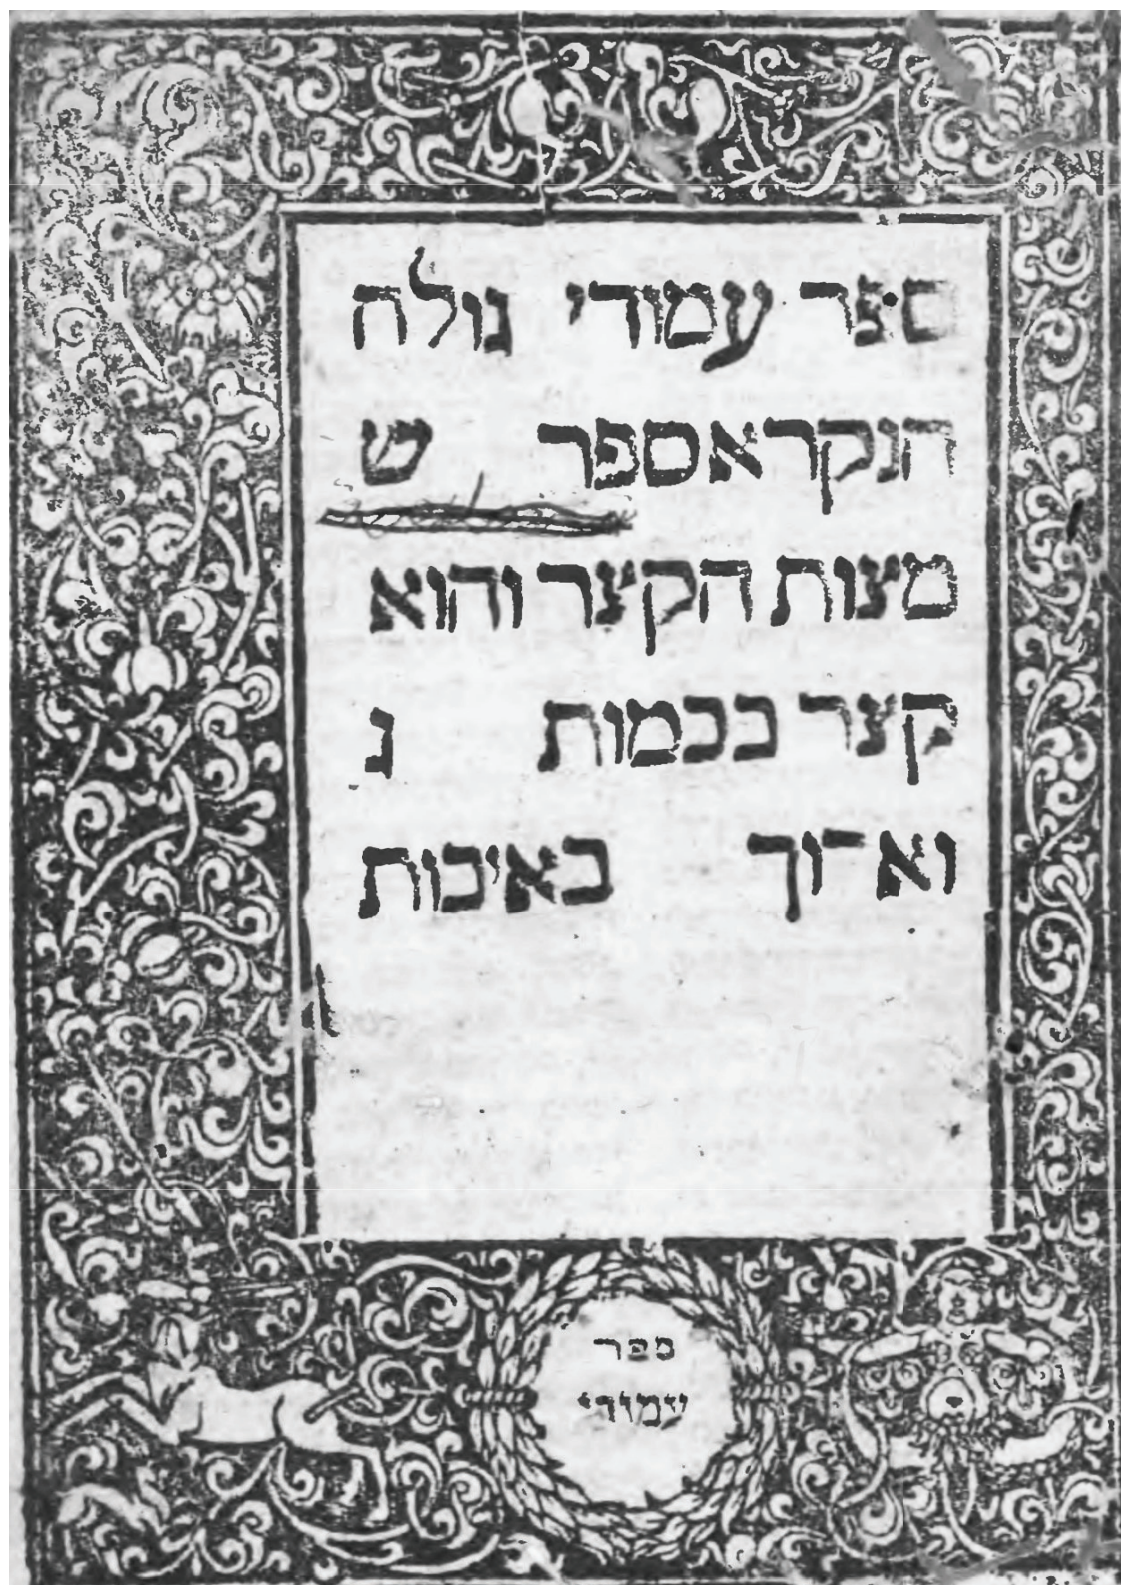 ספר עמודי גולה
הנקרא ספר ש
מצות הקצר והוא
קצר בכמות נ
וארוך באיכות
ספר
עמודי